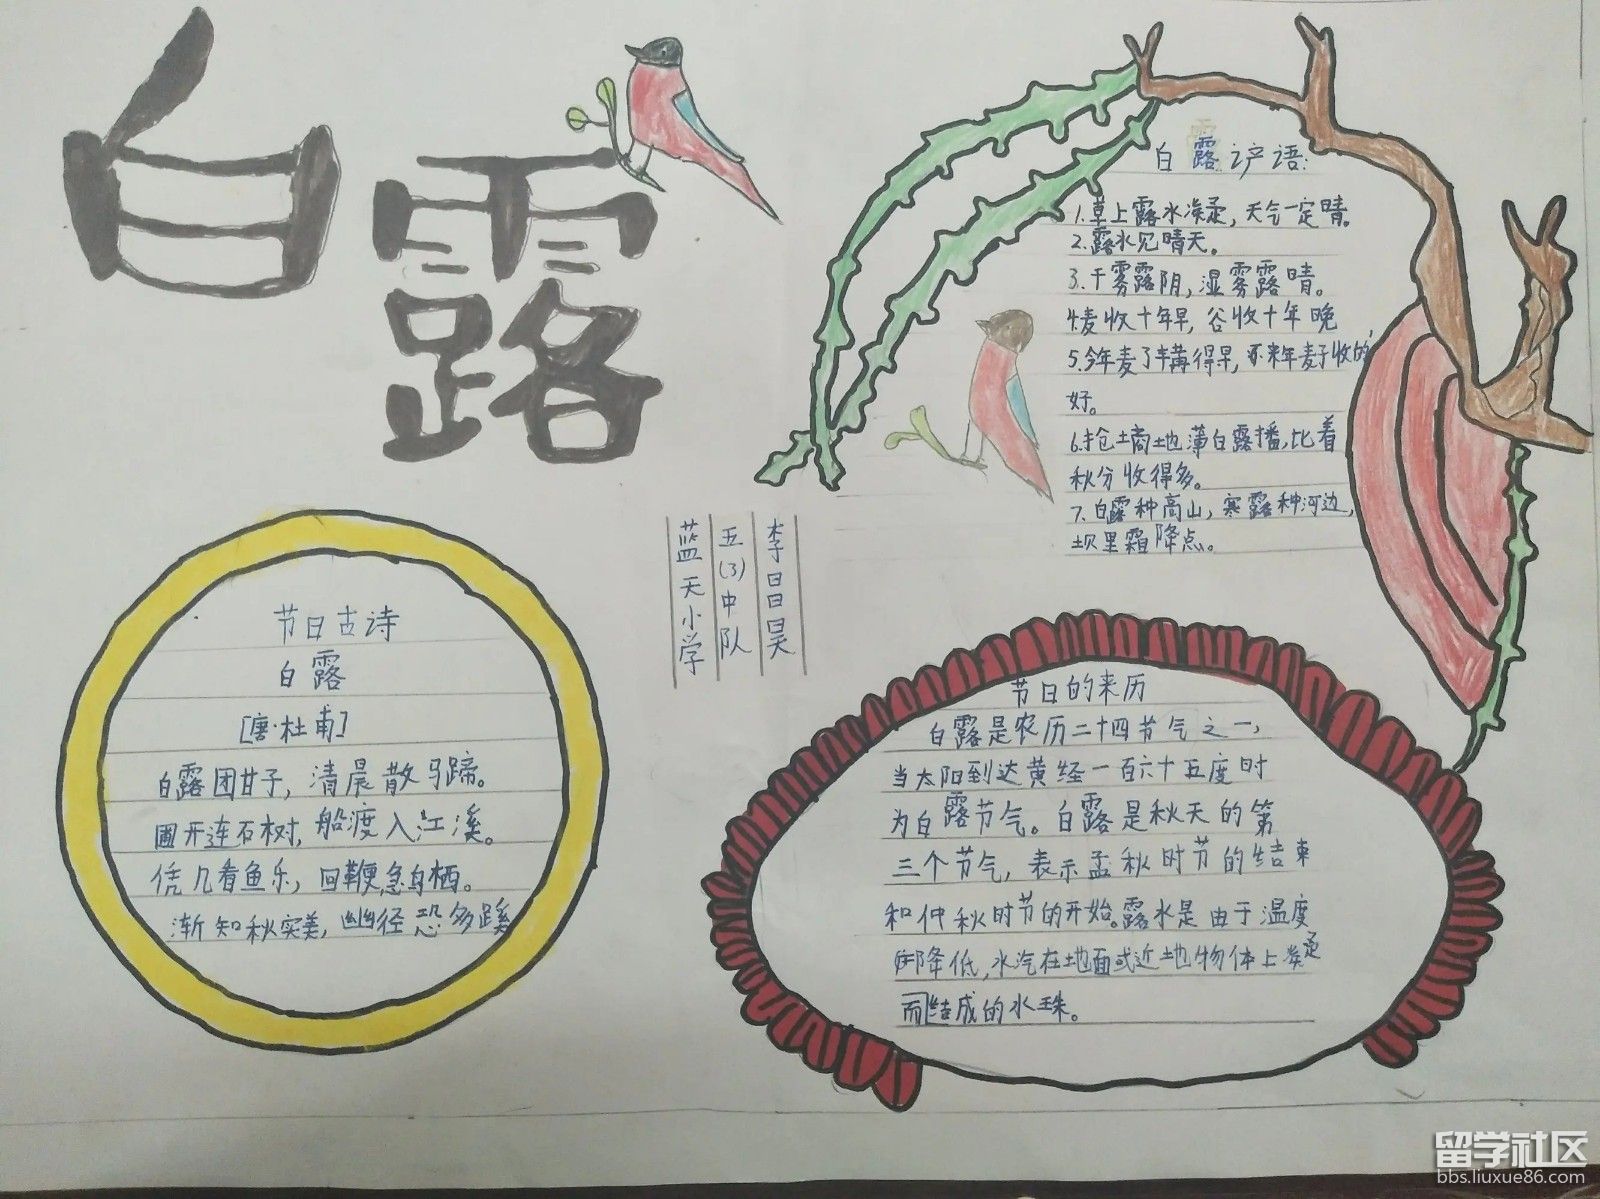 白露
白露谚语:
1.草上露水凝,天气一定晴。
2.露水见晴天。
3.干雾露阴,湿雾露晴。
4.麦收十年早,谷收十年晚
5.今年麦子 得早,来年麦子收的
好。
6.抢土商地薄白露播,比着
秋分收得多。
7.白露种高山,寒露种河边,
坝里霜降点。
蓝天小学
五(3)中队
李昌昊
节日古诗
白露
[唐·杜甫]
白露团甘子,清晨散马蹄。
圃开连石树,船渡入江溪。
凭几看鱼乐,回鞭急鸟栖。
渐知秋实美,幽径恐多蹊
节日的来历
白露是农历二十四节气之一,
当太阳到达黄经一百六十五度时
为白露节气。白露是秋天的第
三个节气,表示孟秋时节的结束
和仲秋时节的开始。露水是由于温度
降低,水汽在地面或近地物体上凝
而结成的水珠。
留学社区
bbs.liuxue86.com